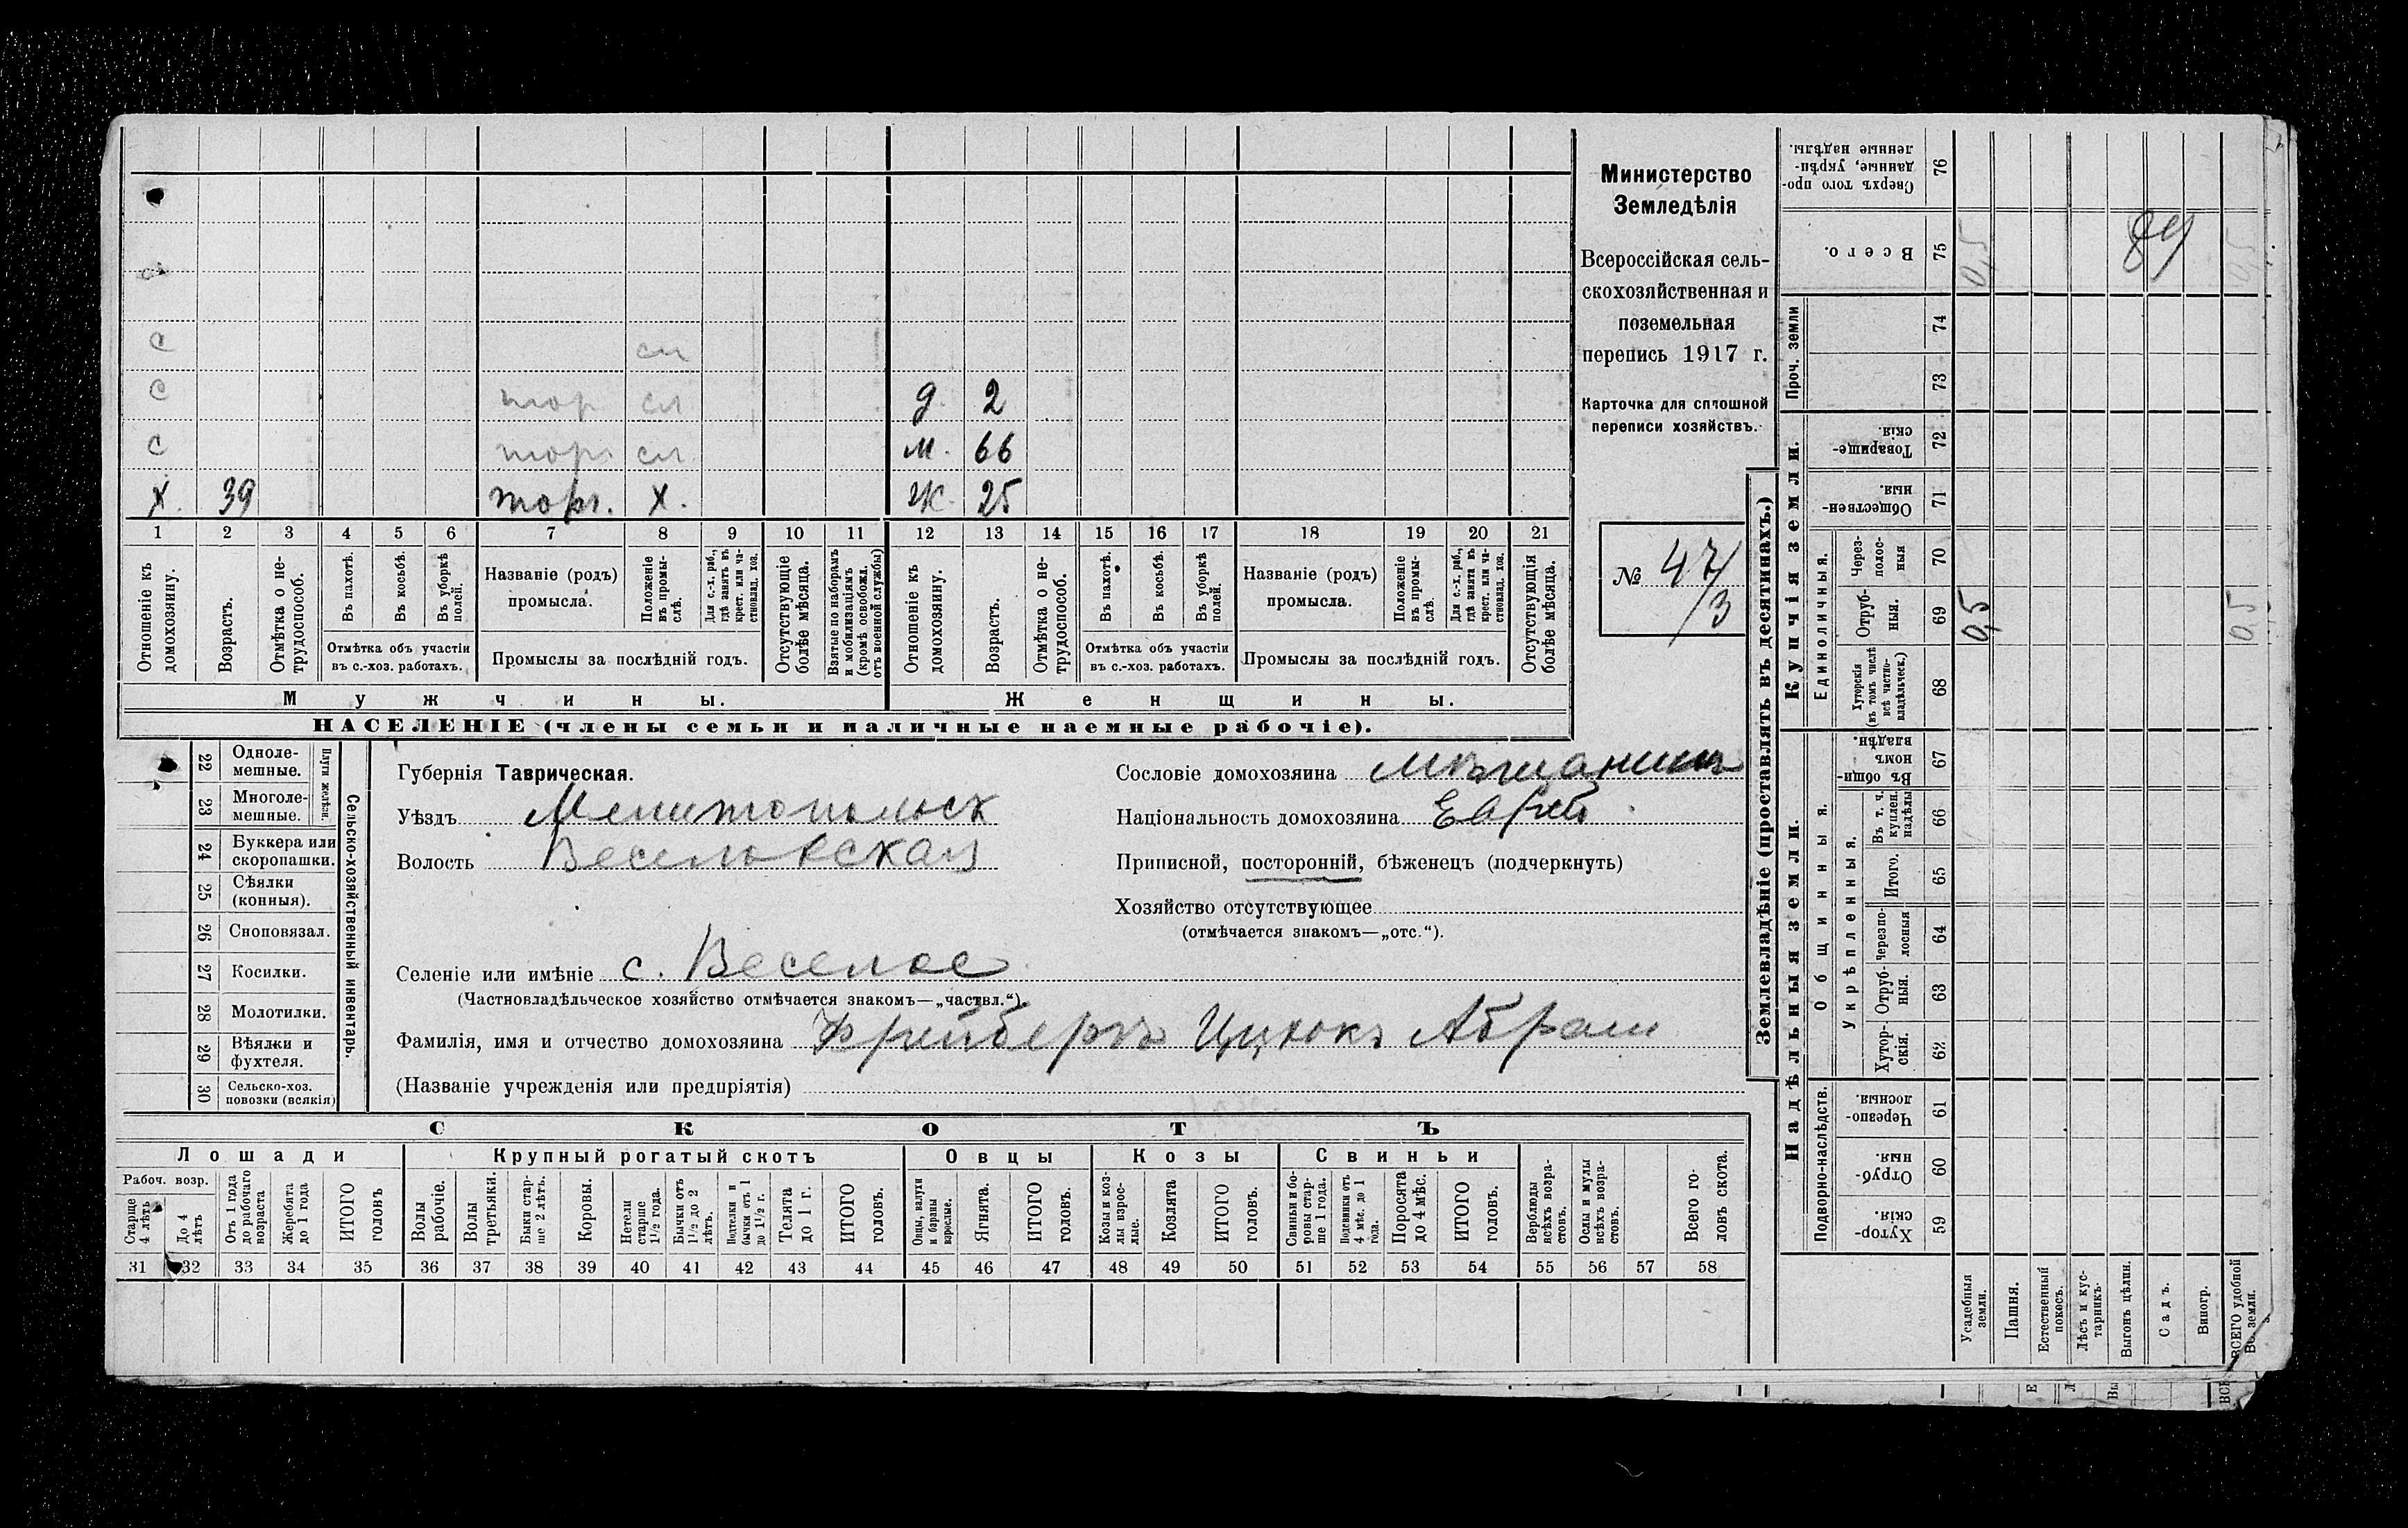 с
с сл
с торг сл д. 2
с торг. сл м. 66
х. 39 торг. х. ж. 25
1 2 3 4 5 6 7 8 9 10 11 12 13 14 15 16 17 18 19 20 21
Отношеніе къ домохозяину.
Возрастъ.
Отмѣтка о не-трудоспособ.
Въ пахотѣ.
Въ косьбѣ.
Въ уборкѣ полей.
Отмѣтка объ участіи
въ с.-хоз. работахъ.
Названіе (родъ)
промысла.
Положеніе въ промы-слѣ.
Для с.-х. раб., гдѣ занятъ въ крест. или ча-стновлад. хоз.
Промыслы за послѣдній годъ.
Отсутствующіе болѣе мѣсяца.
Взятые по наборамъ и мобилизаціямъ (кромѣ освобожд. отъ военной службы)
Отношеніе къ домохозяину.
Возрастъ.
Отмѣтка о не-трудоспособ.
Въ пахотѣ.
Въ косьбѣ.
Въ уборкѣ полей.
Отмѣтка объ участіи
въ с.-хоз. работахъ.
Названіе (родъ)
промысла.
Положеніе въ промы-слѣ.
Для с.-х. раб., гдѣ занята въ крест. или ча-стновлад. хоз.
Промыслы за послѣдній годъ.
Отсутствующія болѣе мѣсяца.
Мужчины. Женщины.
НАСЕЛЕНІЕ (члены семьи и наличные наемные рабочіе).
Министерство
Земледѣлія
Всероссійская сель-
скохозяйственная и
поземельная
перепись 1917 г.
Карточка для сплошной
переписи хозяйствъ.
№ 47/3
22 Одноле-мешные.
23 Многоле-мешные.
Плуги желѣзн.
24 Буккера или скоропашки.
25 Сѣялки (конныя).
26 Сноповязал.
27 Косилки.
28 Молотилки.
29 Вѣялки и фухтеля.
30 Сельско-хоз. повозки (всякія)
Сельско-хозяйственный инвентарь.
Губернія Таврическая.
Уѣздъ Мелитопольск
Волость Веселовская
Сословіе домохозяина мѣщанинъ
Національность домохозяина Еврей
Приписной, посторонній, бѣженецъ (подчеркнуть)
Хозяйство отсутствующее
(отмѣчается знакомъ—„отс.“).
Селеніе или имѣніе с. Веселое
(Частновладѣльческое хозяйство отмѣчается знакомъ—„частвл.“)
Фамилія, имя и отчество домохозяина Фрейбергъ Ицхокъ Абрам
(Названіе учрежденія или предпріятія)
СКОТЪ
Лошади Крупный рогатый скотъ Овцы Козы Свиньи
Рабоч. возр.
Старше 4 лѣтъ
До 4 лѣтъ
Отъ 1 года до рабочаго возраста
Жеребята до 1 года
ИТОГО головъ
Волы рабочіе.
Волы третьяки.
Быки стар-ше 2 лѣтъ.
Коровы.
Нетели старше 1½ года.
Бычки отъ 1½ до 2 лѣтъ.
Подтелки и бычки отъ 1 до 1½ г.
Телята до 1 г.
ИТОГО головъ.
Овцы, валухи и бараны взрослые.
Ягнята.
ИТОГО головъ.
Козы и коз-лы взрос-лые.
Козлята
ИТОГО головъ.
Свиньи и бо-ровы стар-ше 1 года.
Подсвинки отъ 4 мѣс. до 1 года.
Поросята до 4 мѣс.
ИТОГО головъ.
Верблюды всѣхъ возра-стовъ.
Ослы и мулы всѣхъ возра-стовъ.
Всего го-ловъ скота.
31 32 33 34 35 36 37 38 39 40 41 42 43 44 45 46 47 48 49 50 51 52 53 54 55 56 57 58
Землевладѣніе (проставлять въ десятинахъ.)
Купчія земли.
Надѣльныя земли.
Сверхъ того про-данные, укрѣп-ленные надѣлы. 76
Всего. 75 0,5 89 0,5
Проч. земли 74 73
Товарище-скія. 72
Обществен-ныя. 71
Единоличныя.
Через-полос-ныя 70
Отруб-ныя. 69 0,5 0,5
Хуторскія (въ томъ числѣ всѣ частно-владѣльческ.) 68
Общинныя.
Въ общи-номъ владѣн. 67
Укрѣпленныя.
Въ т. ч. куплен. надѣлы 66
Итого. 65
Черезпо-лосныя 64
Отруб-ныя. 63
Хутор-скія. 62
Подворно-наслѣдств.
Черезпо-лосныя. 61
Отруб-ныя. 60
Хутор-скія. 59
Усадебныя земли.
Пашня.
Естественный покосъ.
Лѣсъ и кус-тарникъ.
Выгонъ цѣлин.
Садъ.
Виногр.
ВСЕГО удобной земли.